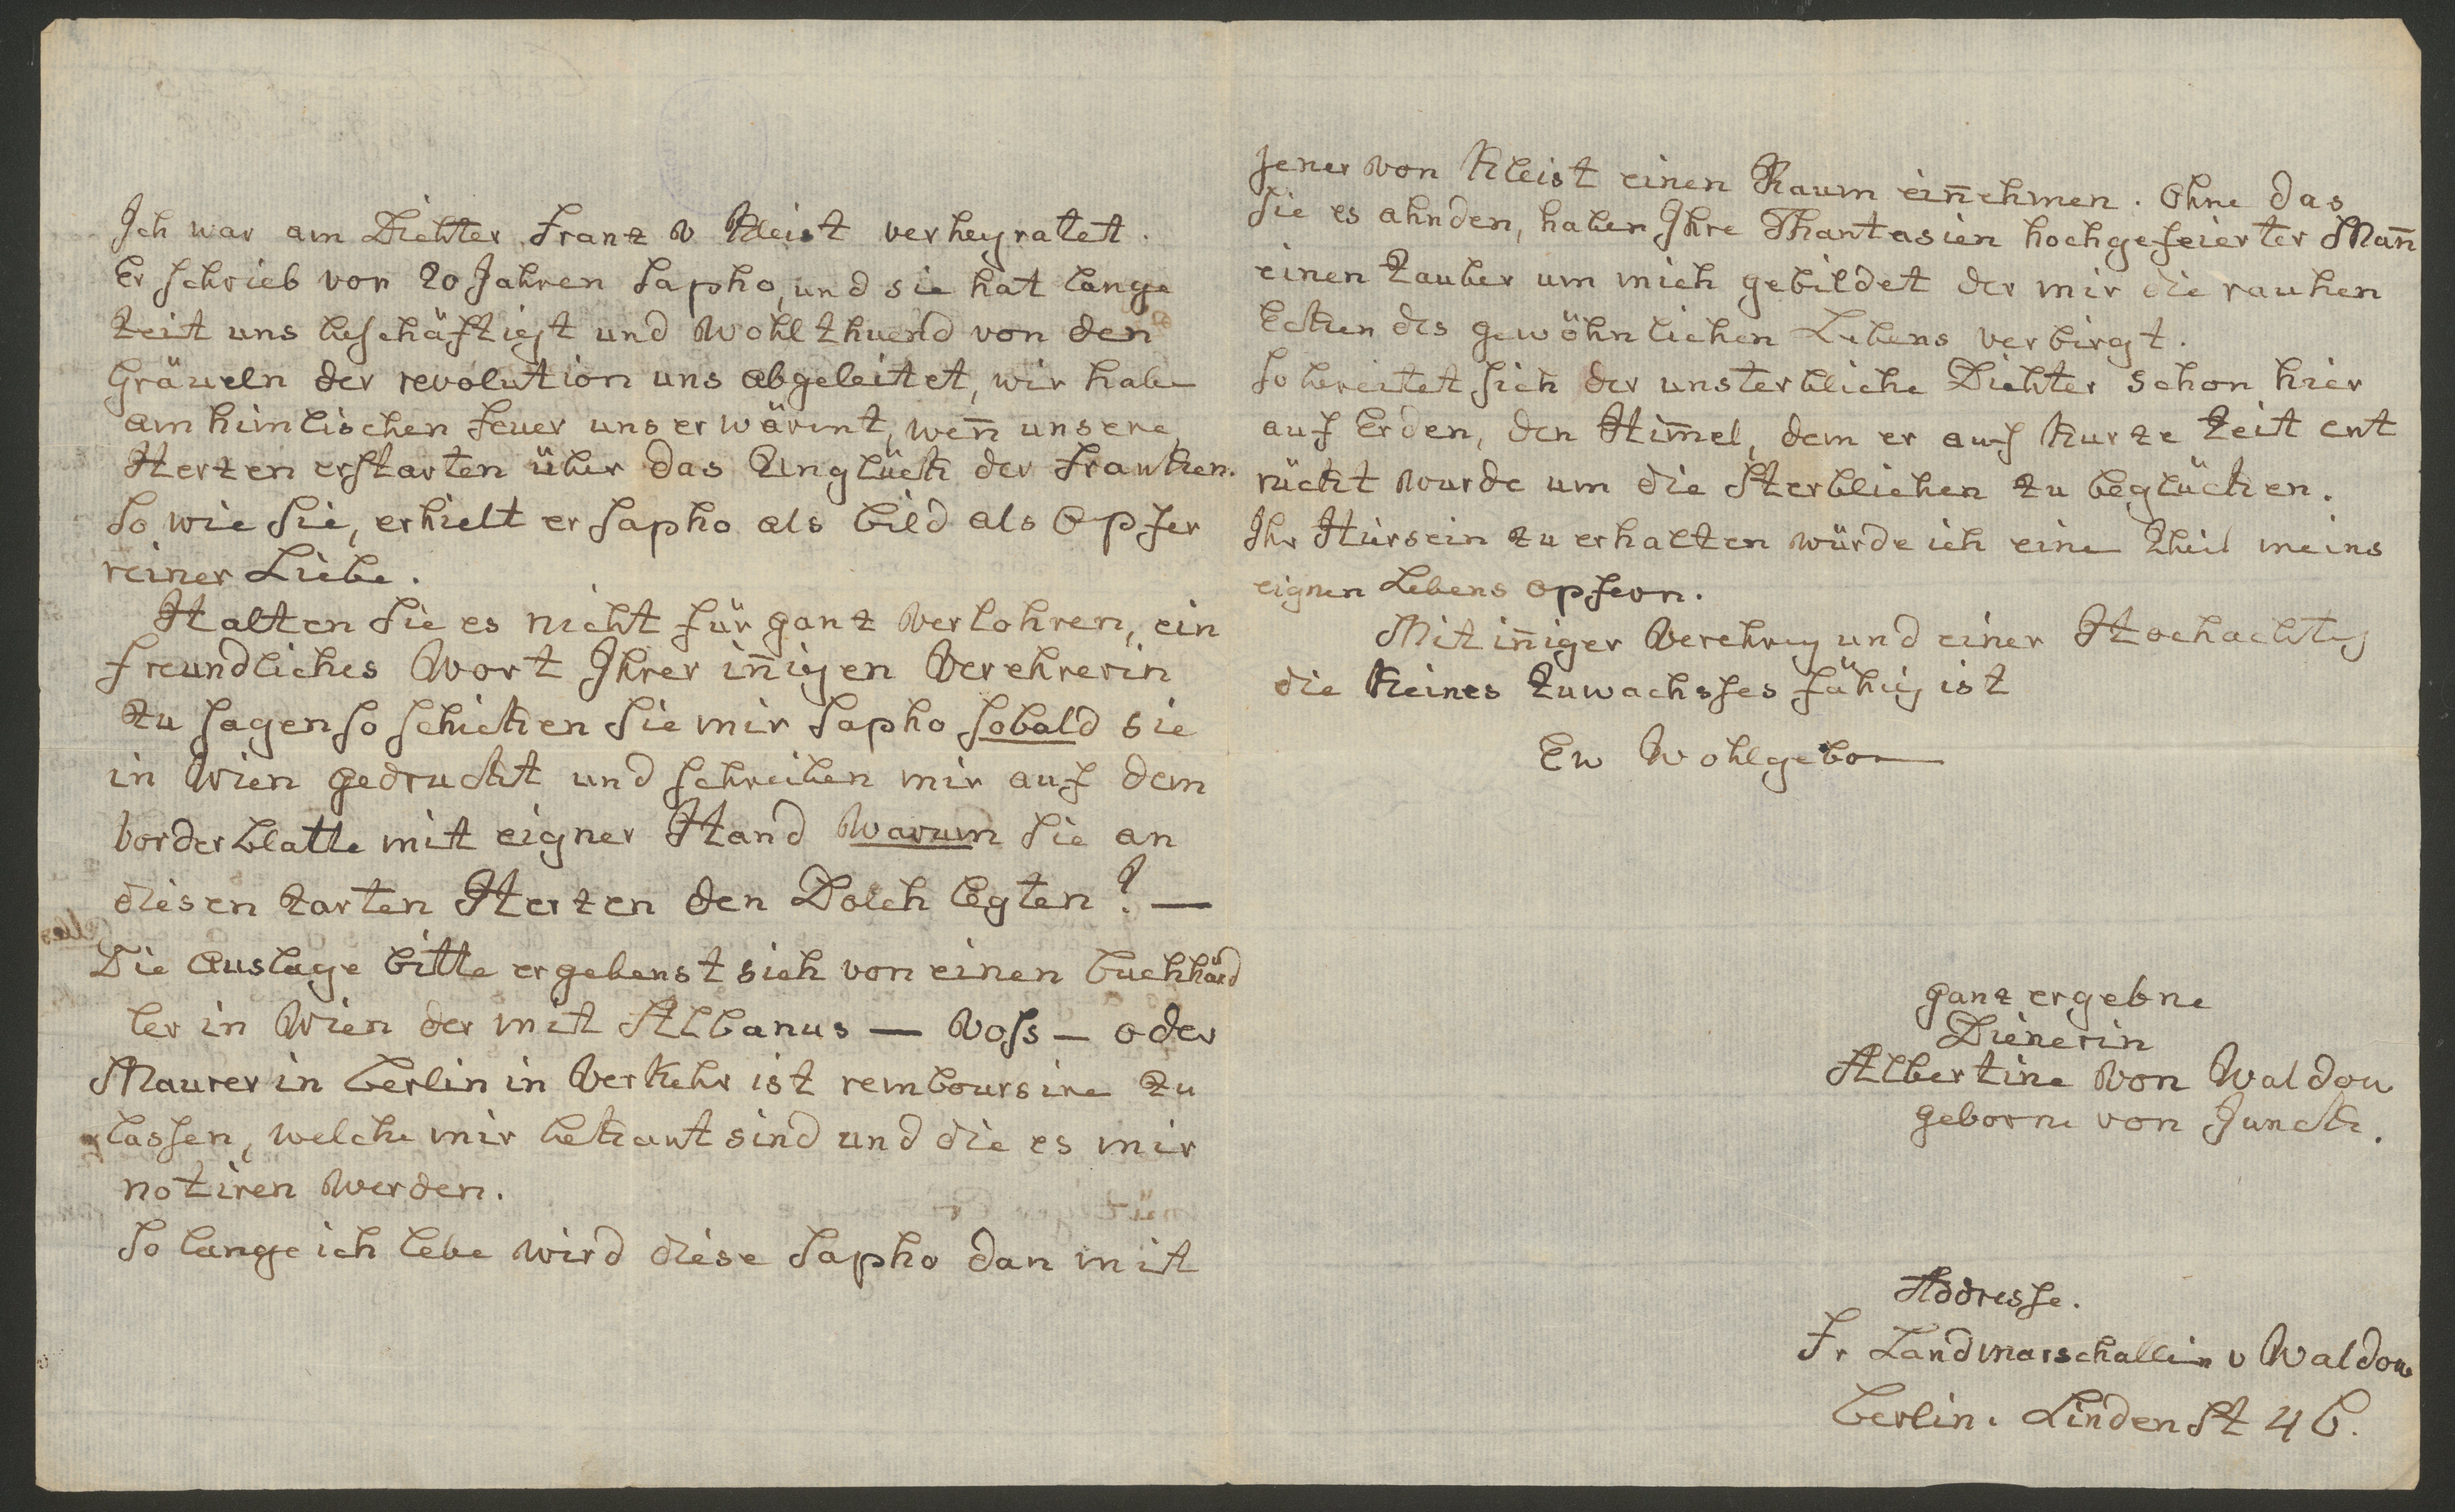 Ich war am Dichter Franz v Kleist verheyratet.
Er schrieb vor 20 Jahren Sapho, und sie hat lange
Zeit uns beschäftigt und wohlthuend von den
Gräueln der revolution uns abgeleitet, wir habe
am himlischen Feuer uns erwärmt, weñ unsere
Herzen erstarten über das Unglück der Franken.
So wie Sie, erhielt er Sapho als Bild als Opfer
reiner Liebe.
Halten Sie es nicht für ganz verlohren, ein
freundliches Wort Ihrer iñigen Verehrerin
zu sagen so schicken Sie mir Sapho sobald sie
in Wien gedruckt und schreiben mir auf dem
Vorderblatte mit eigner Hand warum Sie an
diesen zarten Herzen den Dolch legten? —
Die Auslage bitte ergebenst sich von einen Buchhänd
ler in Wien der mit Albanus — Voss — oder
Maurer in Berlin in Verkehr ist remboursire zu
lassen, welche mir bekant sind und die es mir
notiren werden.
So lange ich lebe wird diese Sapho dan mit
jener von Kleist einen Raum eiñehmen. Ohne das
Sie es ahnden, haben Ihre Phantasien hochgefeierter Mañ
einen Zauber um mich gebildet der mir die rauhen
Ecken des gewöhnlichen Lebens verbirgt.
So bereitet sich der unsterbliche Dichter schon hier
auf Erden, den Him̄el, dem er auf kurze Zeit ent
rückt wurde um die Sterblichen zu beglücken.
Ihr Hiersein zu erhalten würde ich eine Theil meins
eignen Lebens opfern.
Mit iñiger Verehrug und einer Hochachtug
die keines Zuwachsses fähig ist
Ew Wohlgebor
ganz ergebne
Dienerin
Albertine von Waldow
geborne von Junck.
Addresse.
Fr Landmarschallin v Waldow
Berlin. Linden St 46.